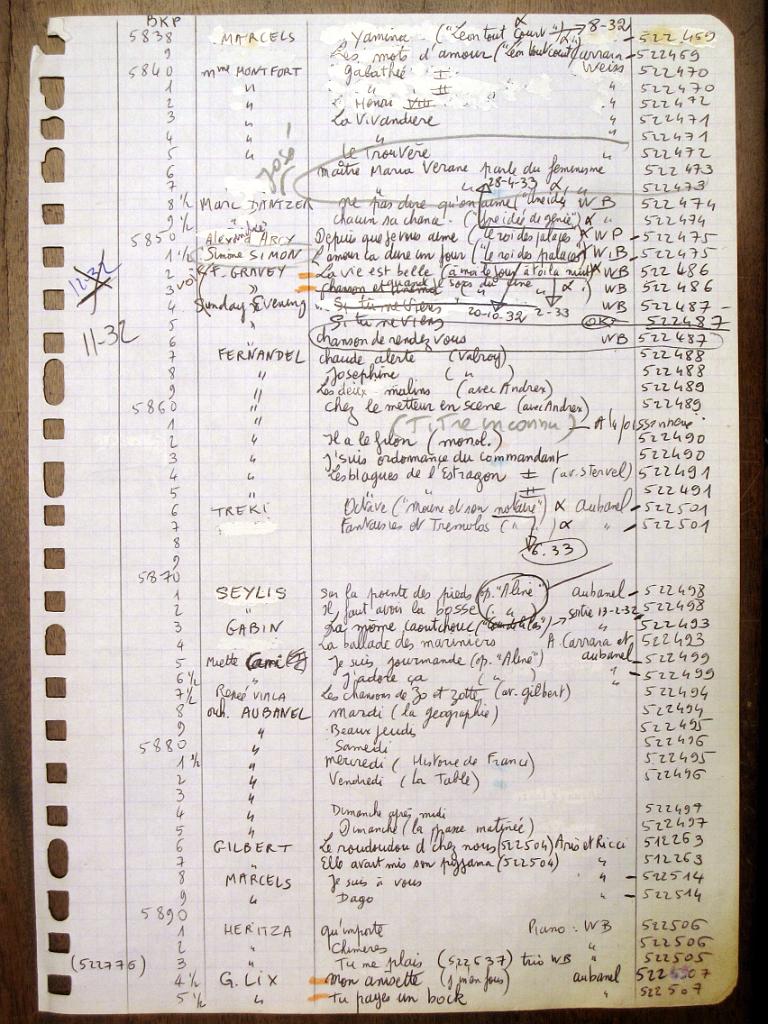 BKP
5838 MARCELS Yamina ("Léon tout court") 8-32 522469
9 Les mots d'amour ("Léon tout court") 522469
5840 Mme MONTFORT Galathée I Weiss 522470
1 " " II " 522470
2 " Henri VIII " 522472
3 " La Vivandière " 522471
4 " " " 522471
5 " Le Trouvère 522472
José
6 Maître Maria Verane parle du féminisme 522473
7 " " 28-4-33 α 522473
8 ½ MARC DANTZER ne pas dire qu'on aime ("Une idée WB 522474
9 ½ " chacun sa chance. ("Une idée de génie") α " 522474
5850 Alexandre ARCY Depuis que je vous aime ("le roi des palaces") WB 522475
1 ½ Simone SIMON L'amour ça dure un jour ("le roi des palaces") WB 522475
12-32
2 F. GRAVEY La vie est belle (à moi le jour à toi la nuit) WB 522486
3 chanson et cinéma quand je sors du ciné ( " α ) WB 522486
4 Sunday Evening Si tu ne viens 20-10-32 2-33 WB 522487
5 " Si tu ne viens OK 522487
11-32
6 " chanson de rendez vous WB 522487
7 FERNANDEL chaude alerte (Valroy) 522488
8 " Josephine ( " ) 522488
9 " Les deux malins (avec Andrex) 522489
5860 " chez le metteur en scene (avec Andrex) 522489
1 " (Titre inconnu) - A la poissonnerie
2 " Il a le filon (monol.) 522490
3 " J'suis ordonnance du commandant 522490
4 " Les blagues de l'Estragon I (av. Sterval) 522491
5 " " II 522491
6 TREKI Octave ("moune et son notaire") α aubanel - 522501
7 Fantaisies et Tremolos ( " " ) α " - 522501
8
6.33
9
5870
1 SEYLIS sur la pointe des pieds (op. "Aliné" aubanel - 522498
2 " Il faut avoir la bosse ( " " sortie 13-2-32 522498
3 GABIN La môme caoutchouc " 522493
4 La ballade des mariniers A. Carrara et 522493
5 Miette Je suis gourmande (op. "Aliné") aubanel - 522499
6 ½ " J'adore ça ( " ) " - 522499
7 ½ Renée VIALA Les chansons de Zo et Zotte (av. gilbert) " 522494
8 orch. AUBANEL Mardi (la geographie) 522494
9 " Beaux jeudis 522495
5880 " Samedi 522496
1 ½ " mercredi ( Histoire de France) 522495
2 " Vendredi (La Table) 522496
3 "
4 " Dimanche après midi 522497
5 " Dimanche (la grasse matinée) 522497
6 GILBERT Le roudoudou d'chez nous (522504) Aris et Ricci 512263
7 " Elle avait mis son pyjama (522504) " 512263
8 MARCELS Je suis à vous " - 522514
9 " Dago " - 522514
5890
1 HERITZA qu'importe Piano : WB 522506
2 " Chimères " 522506
(522776) 3 " Tu me plais (522637) trio WB " 522505
4 ½ G. LIX Mon anisette aubanel 522507
5 ½ " Tu payes un bock 522507